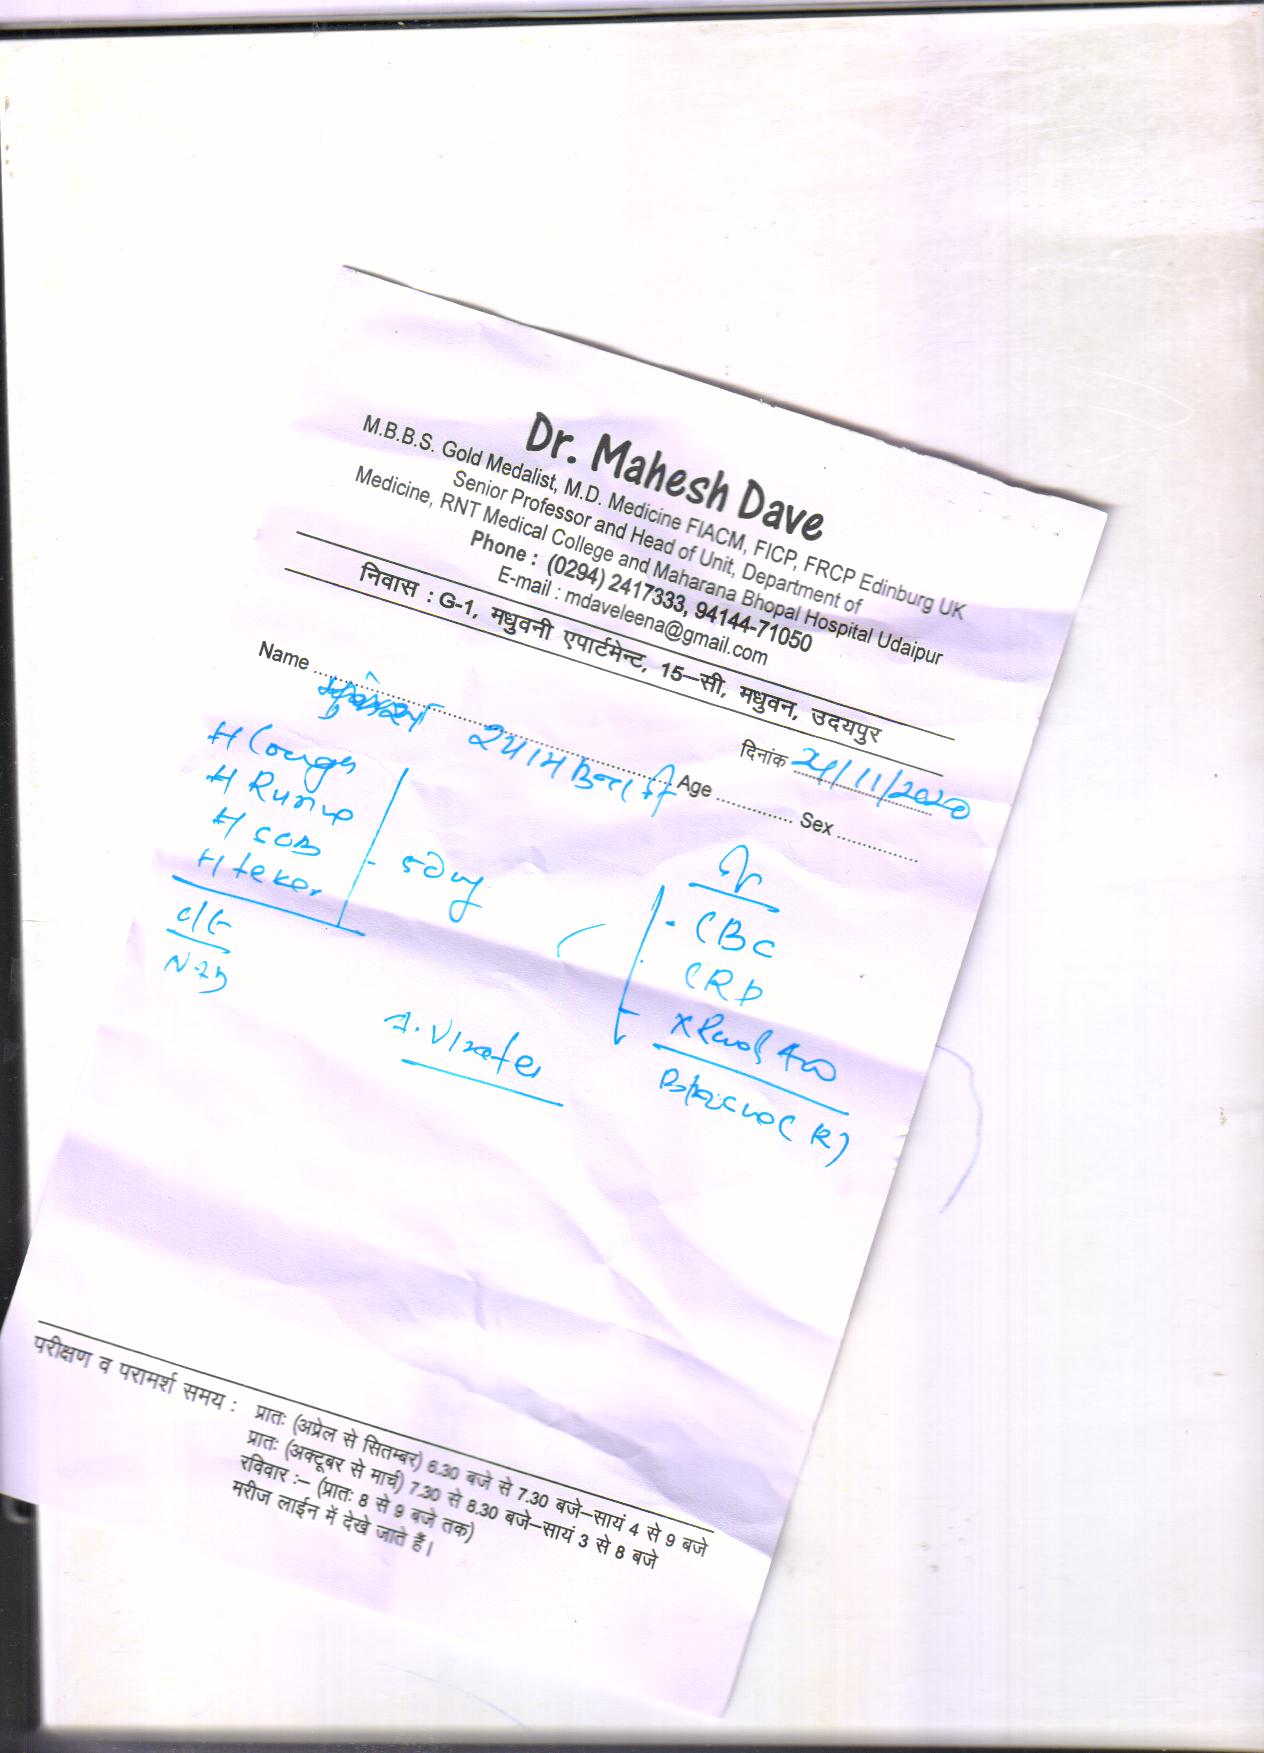 Dr. Mahesh Dave
M.B.B.S. Gold Medalist, M.D. Medicine FIACM, FICP, FRCP Edinburg UK
Senior Professor and Head of Unit, Department of
Medicine, RNT Medical College and Maharana Bhopal Hospital Udaipur
Phone : (0294) 2417333, 94144-71050
E-mail : mdaveleena@gmail.com
निवास : G-1, मधुवनी एपार्टमेन्ट, 15–सी, मधुवन, उदयपुर
दिनांक 24/11/2020
Name Age Sex
H Cough
H
H SOB
H
- 5 day
C/F
- CBC
CRP
परीक्षण व परामर्श समय : प्रातः (अप्रेल से सितम्बर) 6.30 बजे से 7.30 बजे–सायं 4 से 9 बजे
प्रातः (अक्टूबर से मार्च) 7.30 से 8.30 बजे–सायं 3 से 8 बजे
रविवार :– (प्रातः 8 से 9 बजे तक)
मरीज लाईन में देखे जाते हैं।